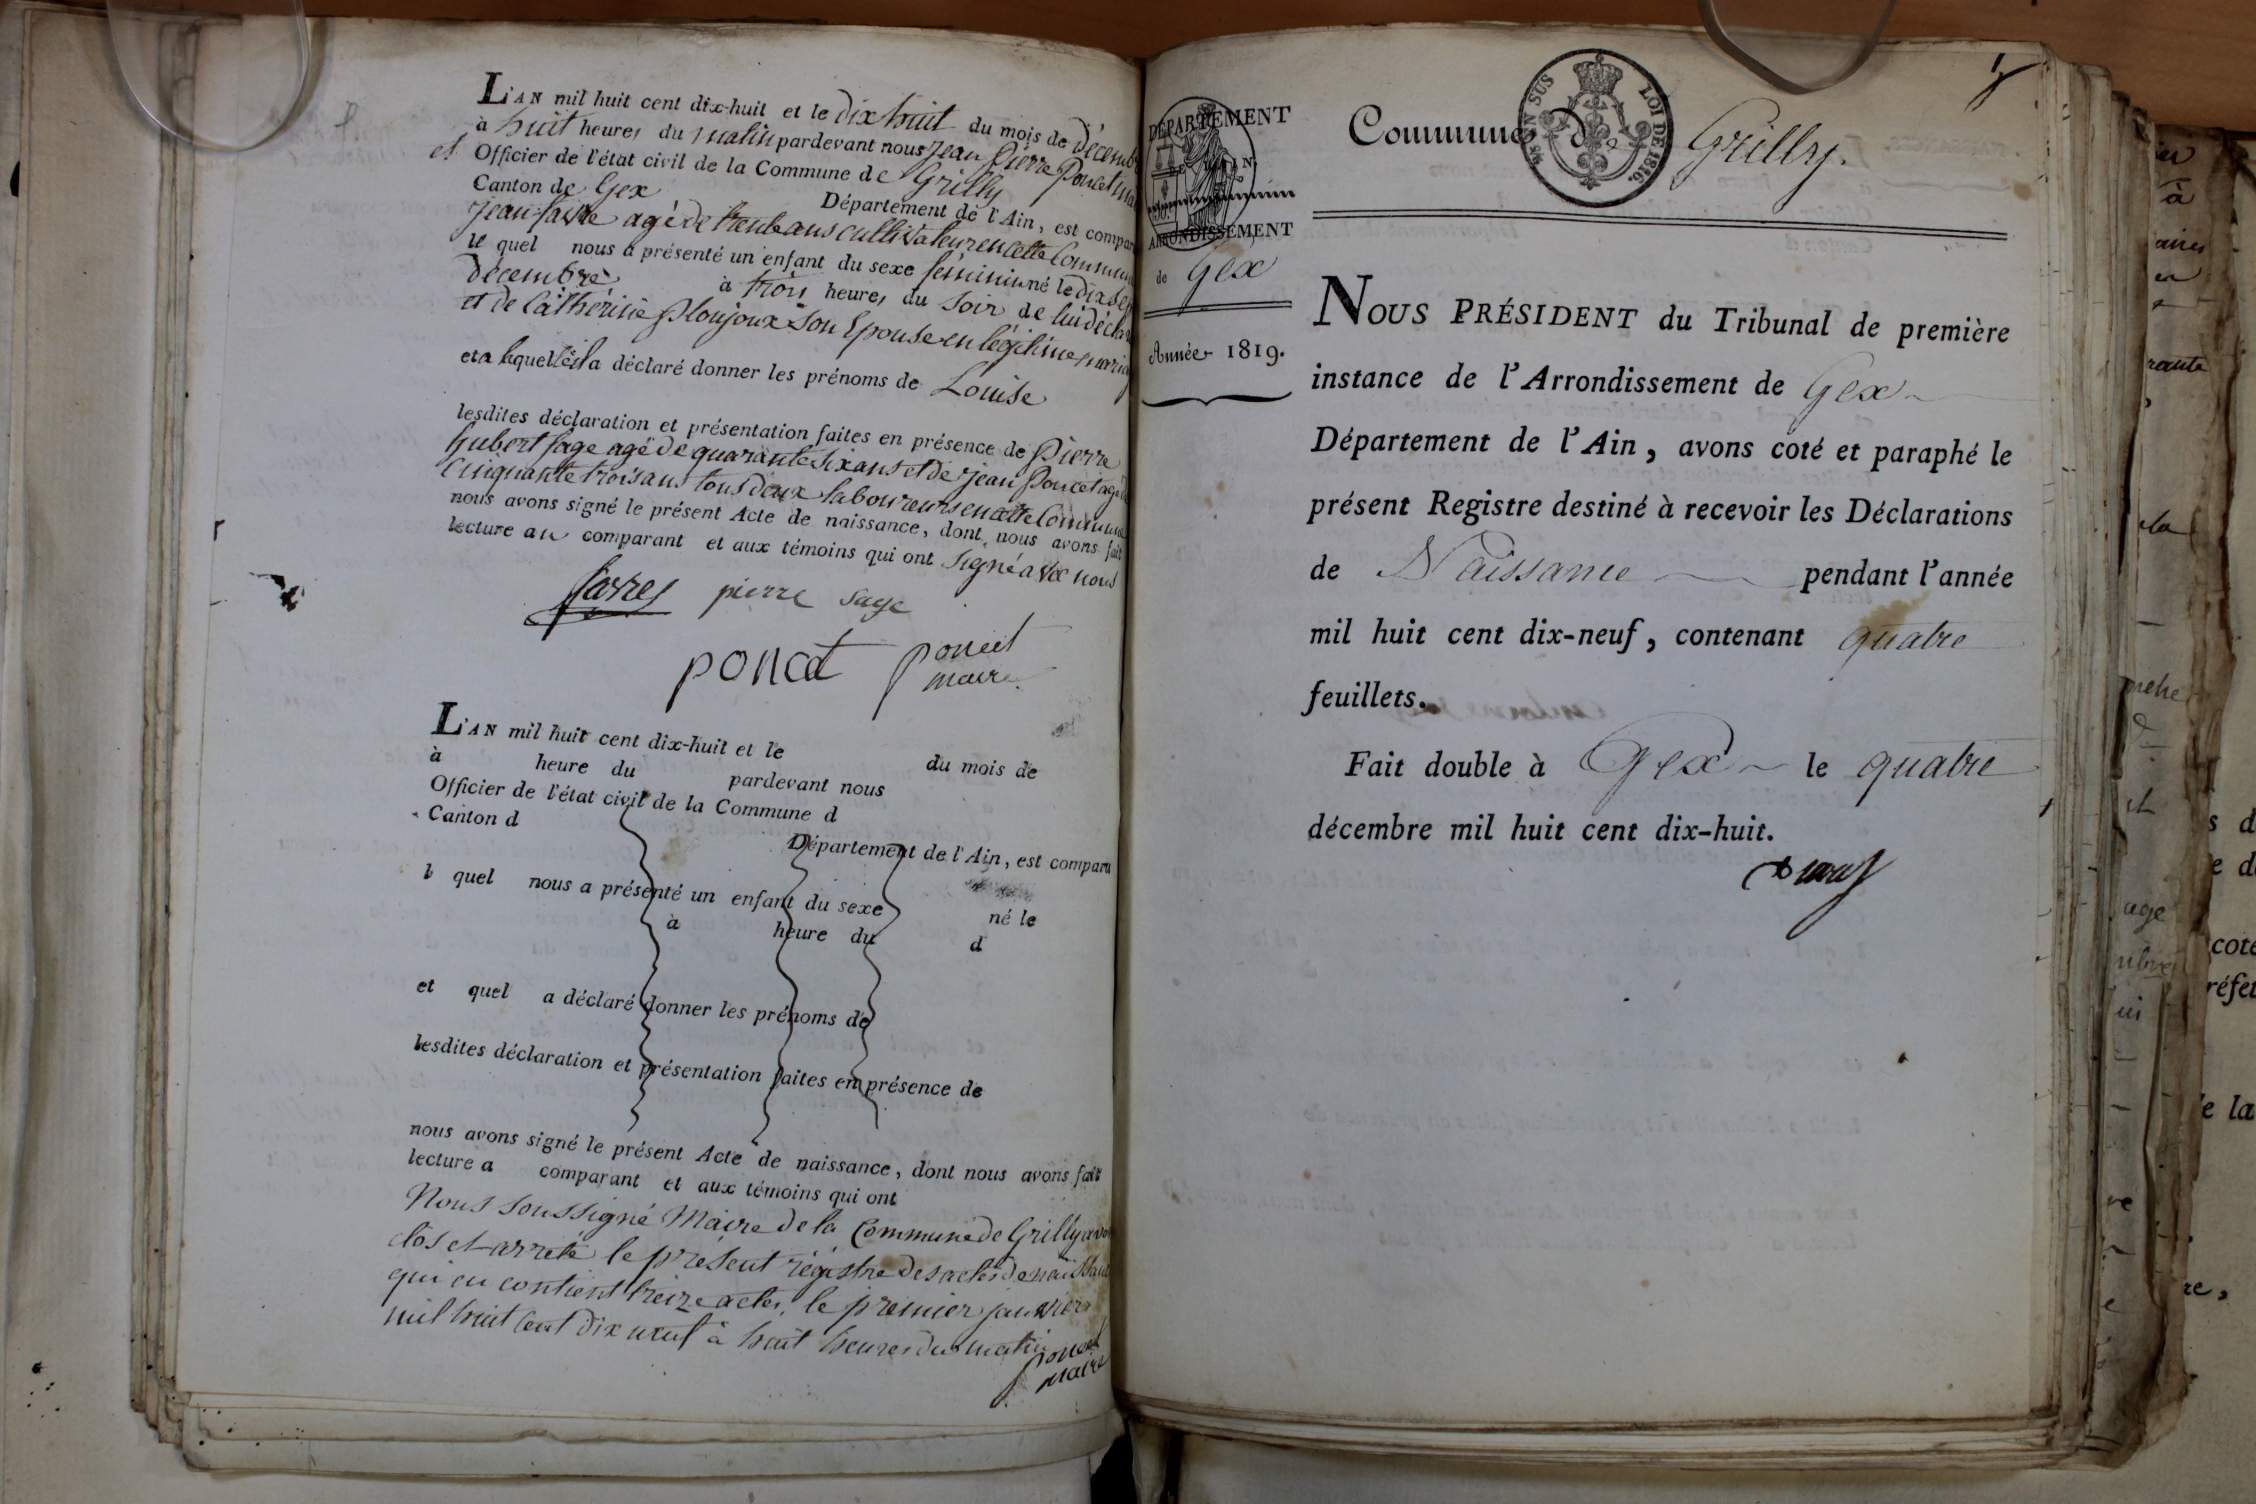 L'AN mil huit cent dix-huit et le dix huit du mois de décemb
à huit heures du matin pardevant nous jean pierre poncet mai
et Officier de l'état civil de la Commune de Grilly
Canton de Gex Département de l'Ain, est compar
jean agé de trente ans cultivateur en cette Commune
le quel nous a présenté un enfant du sexe féminin né le dix sep
décembre à trois heures du soir de lui décla
et de Catherine Ploujoux son Epouse en légitime maria
et a lequel il a déclaré donner les prénoms de Louise
lesdites déclaration et présentation faites en présence de Pierre
hubert sage agé de quarante six ans et de jean Poncet agé d
cinquante trois ans tous deux laboureurs en cette Commune
nous avons signé le présent Acte de naissance, dont nous avons fait
lecture au comparant et aux témoins qui ont signé avec nous
pierre sage
poncet poncet
maire
L'AN mil huit cent dix-huit et le du mois de
à heure du pardevant nous
Officier de l'état civil de la Commune d
Canton d Département de l'Ain, est comparu
l quel nous a présenté un enfant du sexe né le
à heure du d
et quel a déclaré donner les prénoms de
lesdites déclaration et présentation faites en présence de
nous avons signé le présent Acte de naissance, dont nous avons fait
lecture a comparant et aux témoins qui ont
Nous soussigné Maire de la Commune de Grilly avons
clos et arreté le présent régistre des actes de naissance
qui en contient treize actes, le premier janvier
mil huit cent dix neuf à huit heures du matin
poncet
maire
DÉPARTEMENT
DE L'AIN.
ARRONDISSEMENT
de Gex
Année 1819.
1
Commune de Grilly.
EN SUS
LOI DE 1816.
NOUS PRÉSIDENT du Tribunal de première
instance de l'Arrondissement de Gex
Département de l'Ain, avons coté et paraphé le
présent Registre destiné à recevoir les Déclarations
de Naissance pendant l'année
mil huit cent dix-neuf, contenant quatre
feuillets.
Fait double à Gex le quatre
décembre mil huit cent dix-huit.